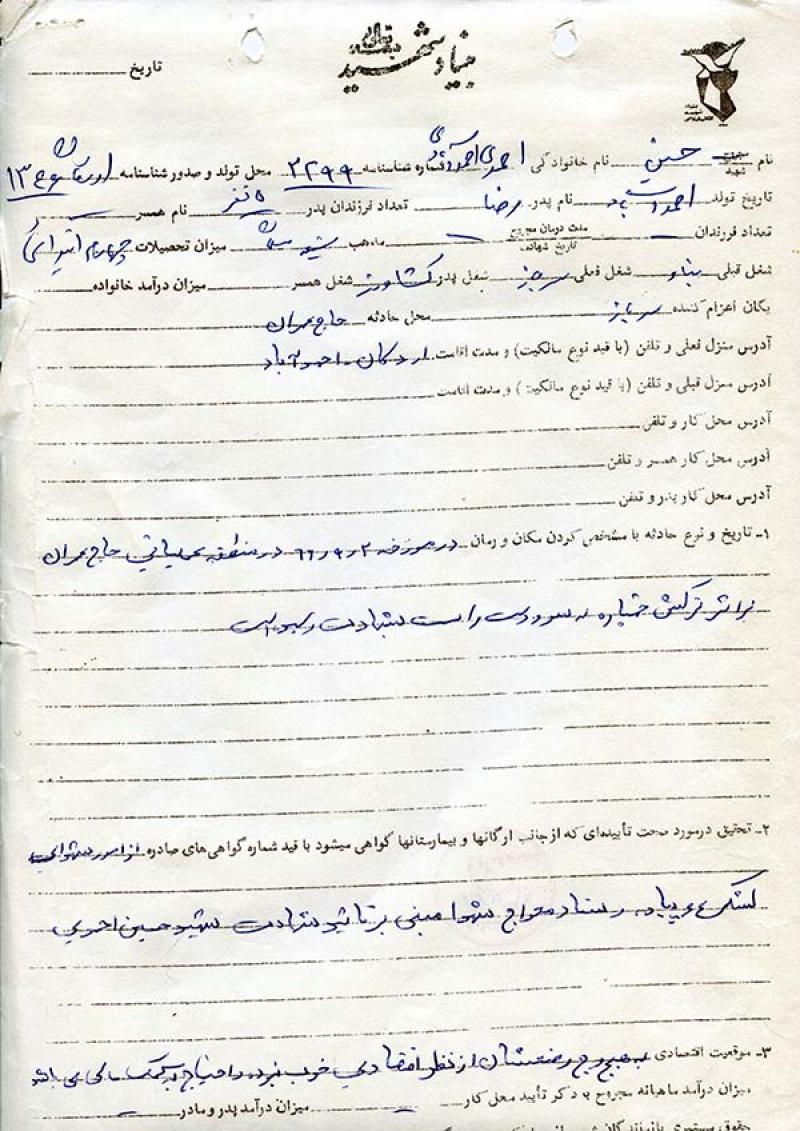 بسمه تعالی
بنیاد شهید
تاریخ
نام مجروح شهید حسین نام خانوادگی احمدی احمدآبادی شماره شناسنامه ۲۲۹۹ محل تولد و صدور شناسنامه اردکان
تاریخ تولد احمدآباد نام پدر رضا تعداد فرزندان پدر ۵ نفر نام همسر
تعداد فرزندان مدت درمان مجروح تاریخ شهادت مذهب شیعه میزان تحصیلات چهارم ابتدائی
شغل قبلی بنا شغل فعلی سرباز شغل پدر کشاورز شغل همسر میزان درآمد خانواده
یگان اعزام کننده سرباز محل حادثه حاج عمران
آدرس منزل فعلی و تلفن (با قید نوع مالکیت) و مدت اقامت اردکان احمدآباد
آدرس منزل قبلی و تلفن (با قید نوع مالکیت) و مدت اقامت
آدرس محل کار و تلفن
آدرس محل کار همسر و تلفن
آدرس محل کار پدر و تلفن
۱ـ تاریخ و نوع حادثه با مشخص کردن مکان و زمان در مورخه ۲ر۹ر۶۶ در منطقه عملیاتی حاج عمران
بر اثر ترکش خمپاره به سر و دست راست بشهادت رسیده است
۲ـ تحقیق درمورد صحت تأییدهای که از جانب ارگانها و بیمارستانها گواهی میشود با قید شماره گواهی‌های صادره از امور شهدای
لشکر ۶۴ پیاده و ستاد معراج شهدا مبنی بر تائید شهادت شهید حسین احمدی
۳ـ موقعیت اقتصادی به هیچ وجه وضعشان از نظر اقتصادی خوب نبوده و احتیاج به کمک مالی می باشد
میزان درآمد ماهیانه مجروح با ذکر تأیید محل کار میزان درآمد پدر و مادر